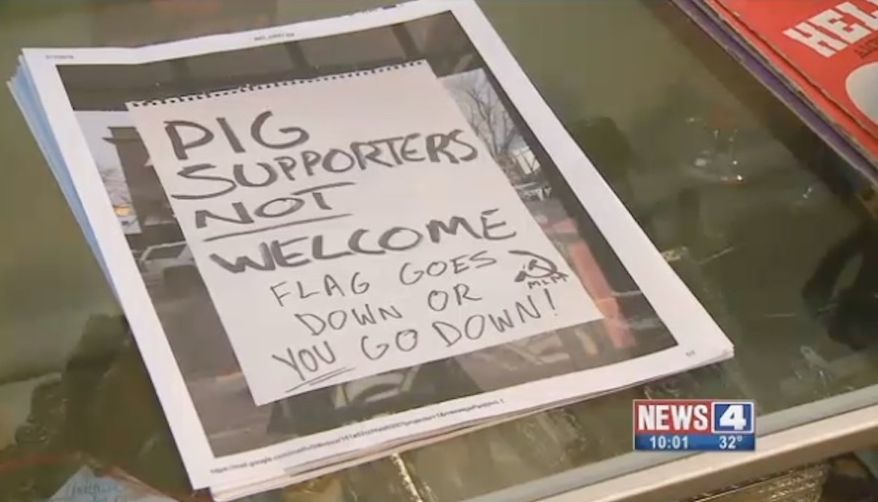 PIG
SUPPORTERS
NOT
WELCOME
FLAG GOES
DOWN OR
YOU GO DOWN!
MLM
HEL
NEWS 4
10:01 32°